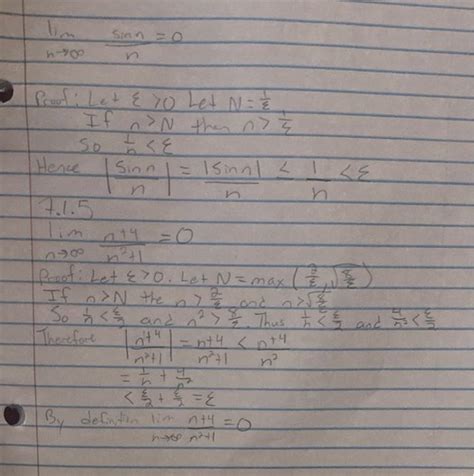 lim n→∞ sinn/n = 0
Proof: Let ε > 0 Let N = 1/ε
If n > N then n > 1/ε
So 1/n < ε
Hence |sinn/n| = |sinn|/n ≤ 1/n < ε
7.1.5
lim n→∞ n+4/n²+1 = 0
Proof: Let ε > 0. Let N = max(2/ε, √(8/ε))
If n > N the n > 2/ε and n > √(8/ε)
So 1/n < ε/2 and n² > 8/ε. Thus 1/n < ε/2 and 4/n² < ε/2
Therefore |n+4/n²+1| = n+4/n²+1 < n+4/n²
= 1/n + 4/n²
< ε/2 + ε/2 = ε
By defintin lim n→∞ n+4/n²+1 = 0